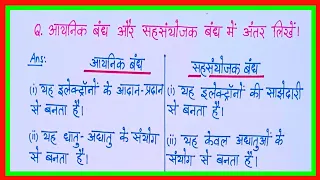 Q. आयनिक बंध और सहसंयोजक बंध में अंतर लिखें।
Ans:
आयनिक बंध
(i) यह इलेक्ट्रॉनों के आदान-प्रदान
से बनता है।
(ii) यह धातु-अधातु के संयोग
से बनता है।
सहसंयोजक बंध
(i) यह इलेक्ट्रॉनों की साझेदारी
से बनता है।
(ii) यह केवल अधातुओं के
संयोग से बनता है।